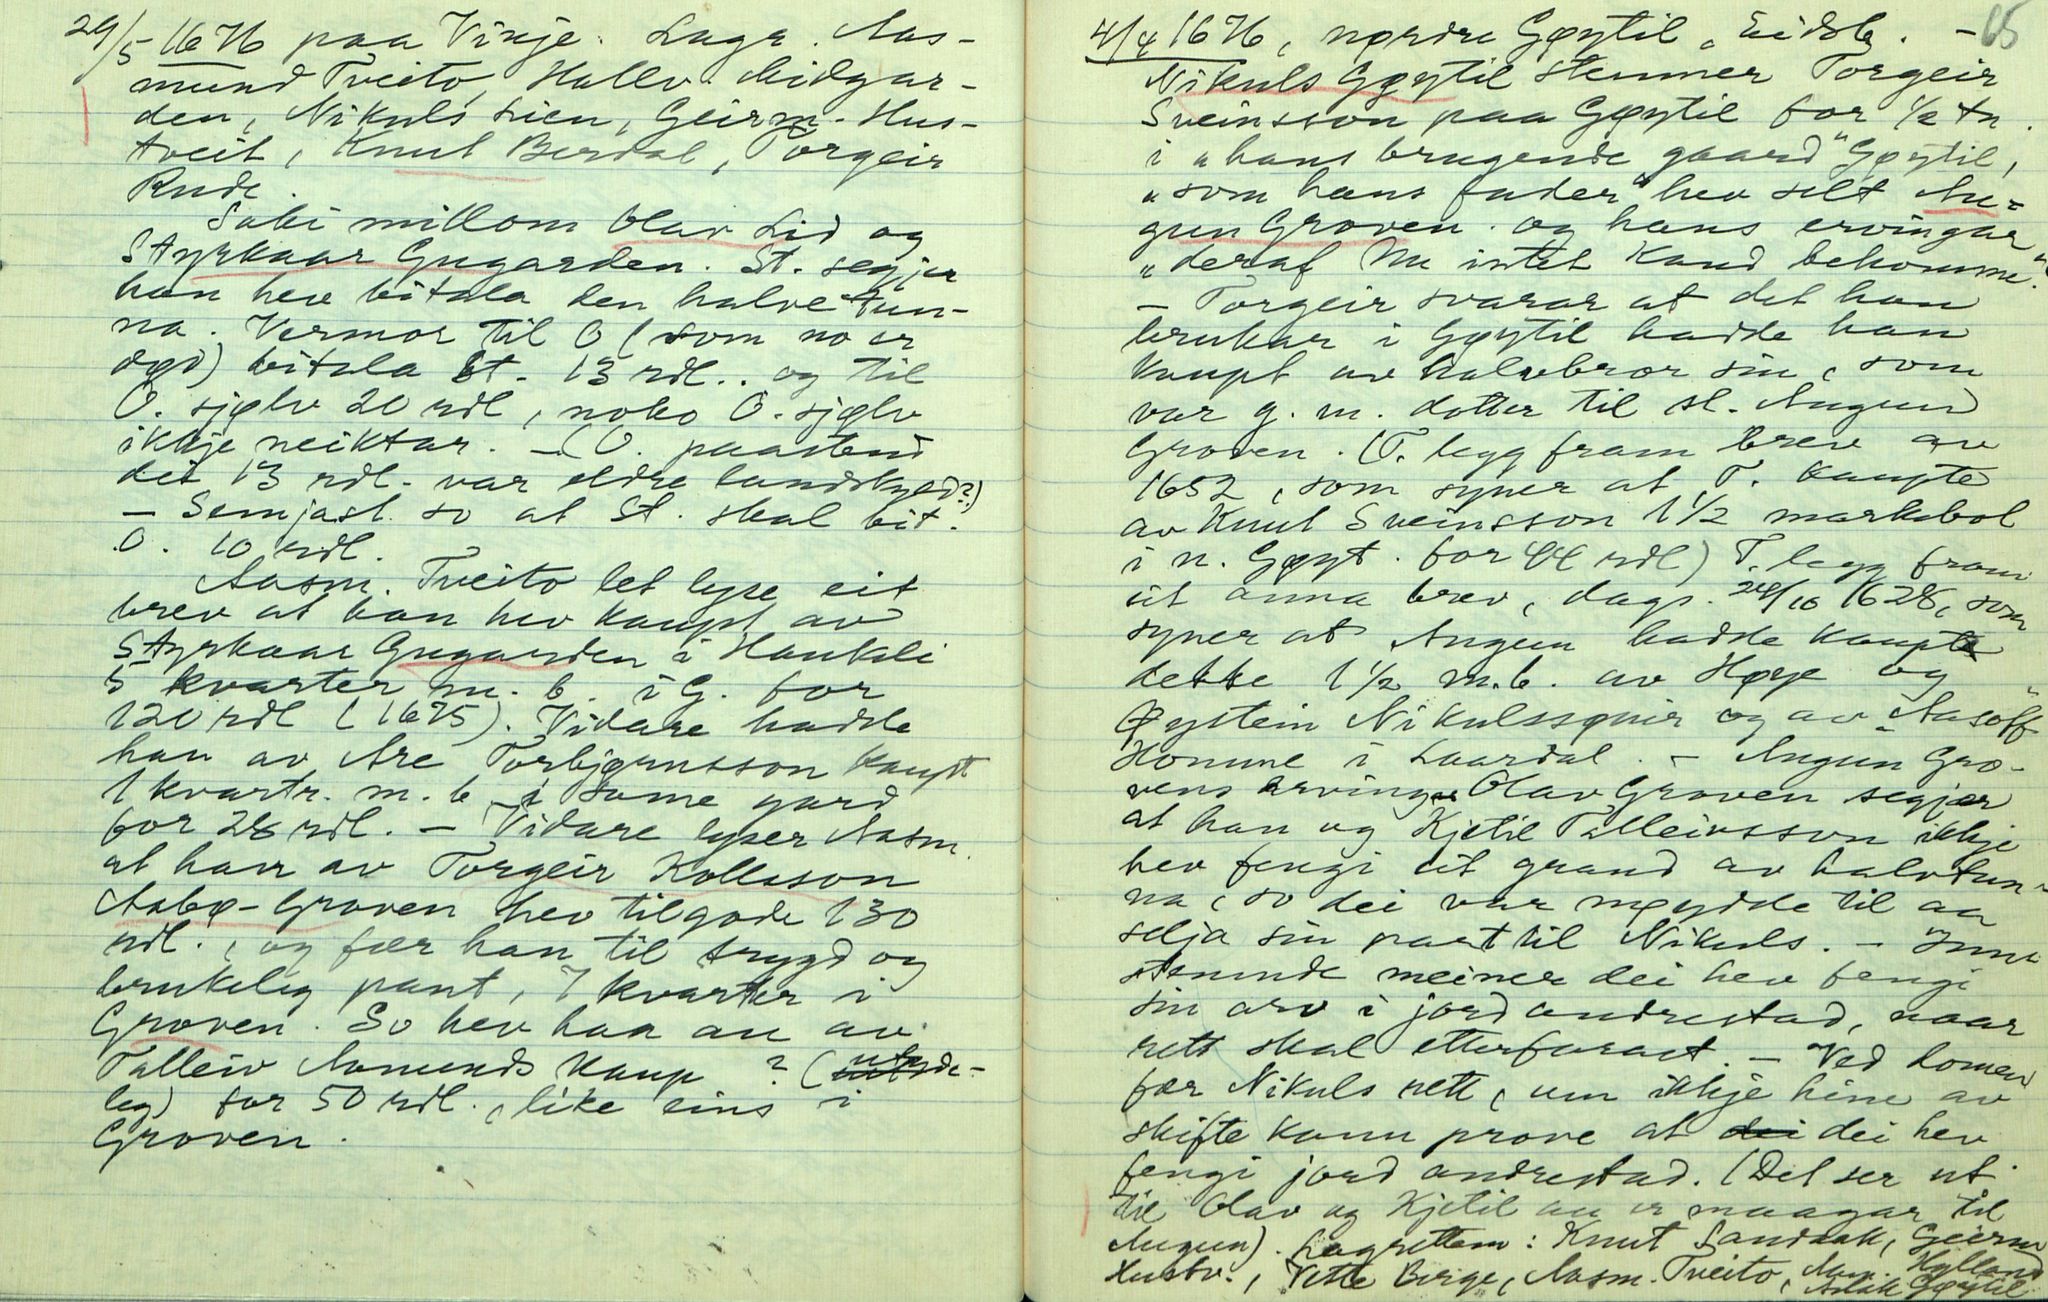 29/5 1676 paa Vinje. Lagr. Aas-
mund Tveito, Hallv. Midgar-
den, Nikuls Lien, Geirm. Hus-
tveit, Knut Berdal, Torgeir
Rude.
Saki millom Olav Lid og
Styrkaar Gugarden. St. segjer
han hev bitala den halve tun-
na. Vermor til O (som no er
død) bitala St. 13 rdl.. og til
O. sjølv 20 rdl, noko O. sjølv
ikkje neiktar. – (O. paastend
dei 13 rdl. var eldre landskyld?)
– Semjast so at St. skal bit.
O. 10 rdl.
Aasm. Tveito let lyse eit
brev at han hev kaupt av
Styrkaar Gugarden i Haukli
5 kvarter m. b. i G. for
120 rdl (1675). Vidare hadde
han av Are Torbjørnsson kaupt
1 kvartr. m. b. i same gard
for 28 rdl. – Vidare lyser Aasm.
at han av Torgeir Kolleson
Aabø-Groven hev tilgode 130
rdl., og fær han til trygd og
brukeleg pant, 7 kvarter i
Groven. So hev han au av
Talleiv Aamunds kaup ? (
leg) for 50 rdl., like eins i
Groven.
65
4/4 1676, nørdre Gøytil, Eidsb. –
Nikuls Gøytil stemner Torgeir
Sveinsson paa Gøytil for 1/2 tn.
i "hans brugende gaard" Gøytil,
"som hans fader" hev selt Au-
gun Groven. og hans ervingar
"deraf Nu intet Kand bekomme".
– Torgeir svarar at det han
brukar i Gøytil hadde han
kaupt av halvbror sin, som
var g. m. dotter til sl. Augun
Groven. (T. legg fram brev av
1652, som syner at T. kaupte
av Knut Sveinsson 1 1/2 markebol
i n. Gøyt. for 44 rdl) T. legg fram
eit anna brev, dags. 24/10 1628, som
syner at Augun hadde kaupt
dette 1 1/2 m.b. av Høye og
Øystein Nikulssønir og av "Aasoff"
Homme i Laardal. – Augun Gro-
vens arving Olav Groven segjer
at han og Kjetil Talleivsson ikkje
hev fengi eit grand av halvtun-
na, so dei var nøydde til aa
selja sin part til Nikuls. – Inn-
stemnde meiner dei hev fengi
sin arv i jord andrestad, naar
rett skal etterfarast. – Ved domen
fær Nikuls rett, um ikkje hine av
skifte kann prove at dei dei hev
fengi jord andrestad. (Det ser ut
til Olav og Kjetil au er maagar til
Augun). Lagrettem: Knut Sandaak, Geirm
Hustv., Vetle Berge, Aasm. Tveito, Aan. Hylland
Aslak Gøytil